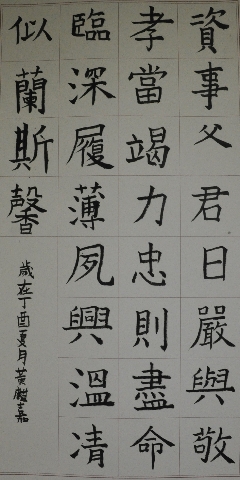 資事父君日嚴與敬
孝當竭力忠則盡命
臨深履薄夙興溫凊
似蘭斯馨
歲在丁酉夏月黃麟嘉